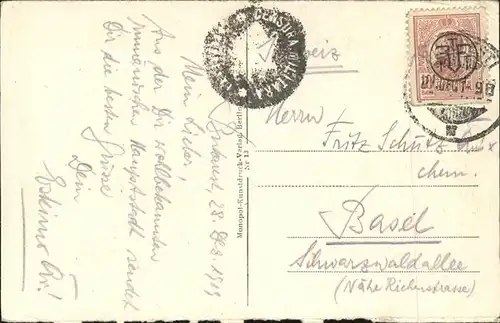 Bukarest, 28. Dez. 1919
Mein Lieber,
Aus der Dir wohlbekannten
rumänischen Hauptstadt sendet
Dir die besten Grüsse
Dein
Monopol-Kunstdruck-Verlag Berlin
Schweiz
Herrn
Fritz Schütz
chem.
Basel
Schwarzwaldallee
(Nähe Riehenstrasse)